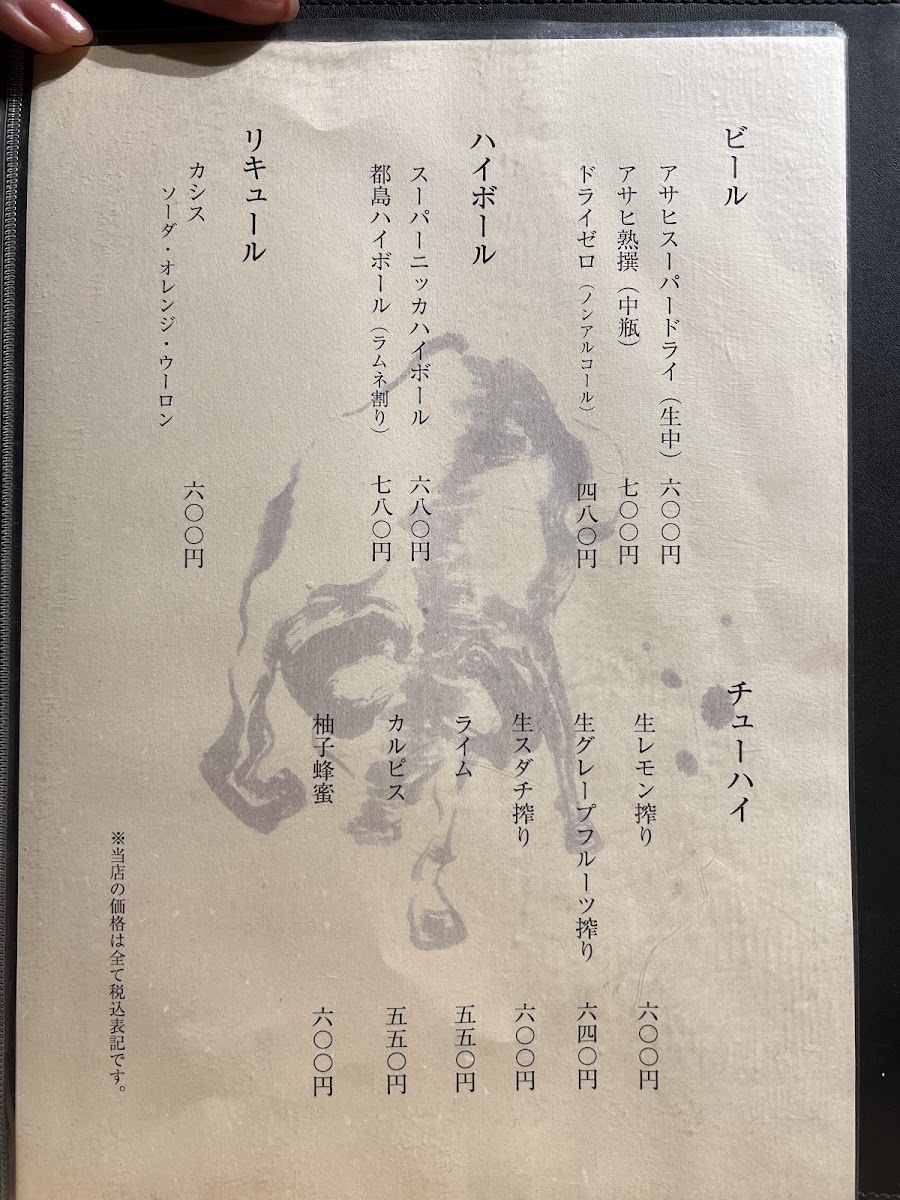 ビール
アサヒスーパードライ（生中）六〇〇円
アサヒ熟撰（中瓶）七〇〇円
ドライゼロ（ノンアルコール）四八〇円
ハイボール
スーパーニッカハイボール 六八〇円
都島ハイボール（ラムネ割り）七八〇円
リキュール
カシス 六〇〇円
ソーダ・オレンジ・ウーロン
チューハイ
生レモン搾り 六〇〇円
生グレープフルーツ搾り 六四〇円
生スダチ搾り 六〇〇円
ライム 五五〇円
カルピス 五五〇円
柚子蜂蜜 六〇〇円
※当店の価格は全て税込表記です。